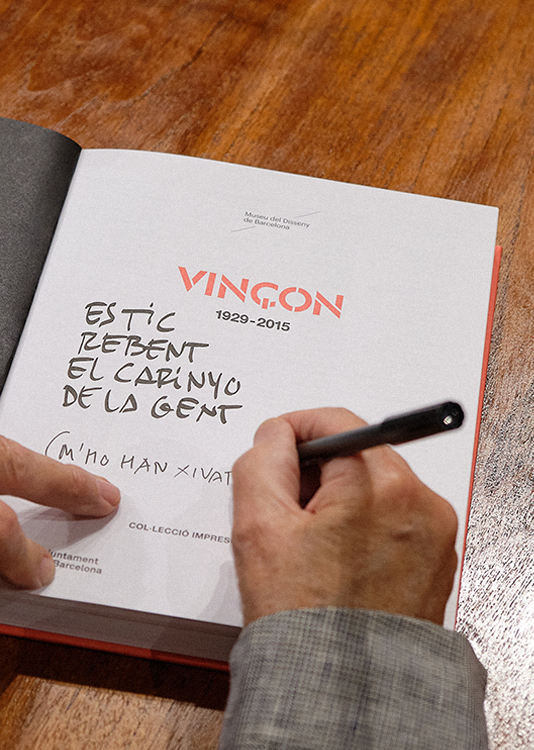 Museu del Disseny
de Barcelona
VINÇON
1929-2015
ESTIC
REBENT
EL CARINYO
DE LA GENT
(M'HO HAN XIVAT
COL·LECCIÓ
Barcelona